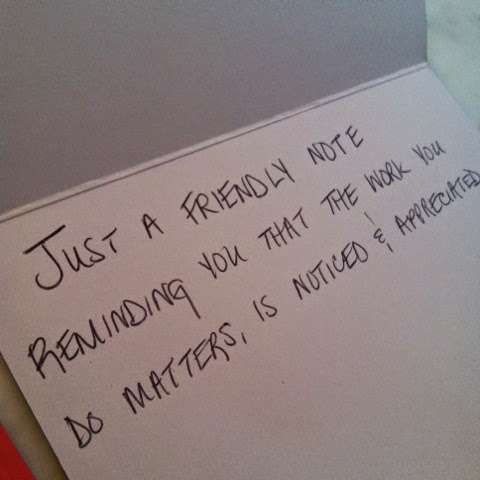 JUST A FRIENDLY NOTE
REMINDING YOU THAT THE WORK YOU
DO MATTERS, IS NOTICED & APPRECIATED